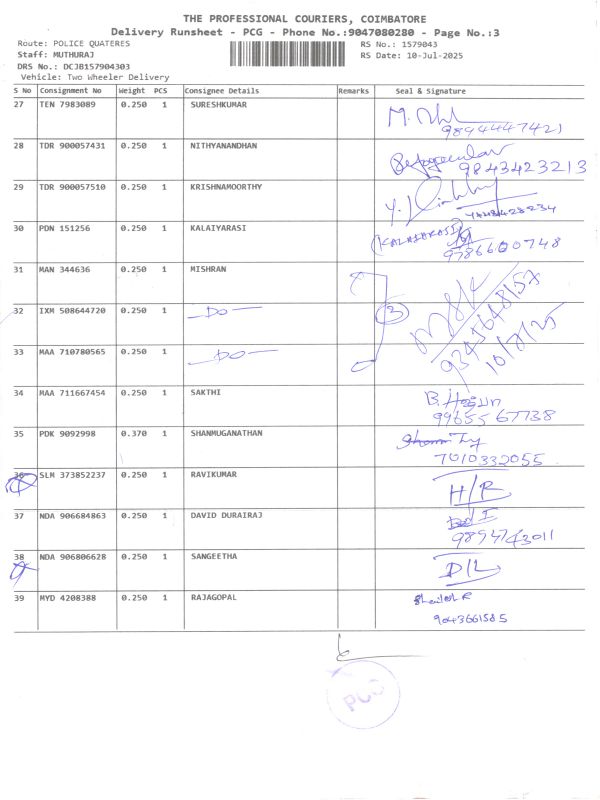 THE PROFESSIONAL COURIERS, COIMBATORE
Delivery Runsheet - PCG - Phone No.:9047080280 - Page No.:3
Route: POLICE QUATERES RS No.: 1579043
Staff: MUTHURAJ RS Date: 10-Jul-2025
DRS No.: DCJB157904303
Vehicle: Two Wheeler Delivery
S No Consignment No Weight PCS Consignee Details Remarks Seal & Signature
27 TEN 7983089 0.250 1 SURESHKUMAR
9894447421
28 TDR 900057431 0.250 1 NITHYANANDHAN
9843423213
29 TDR 900057510 0.250 1 KRISHNAMOORTHY
30 PDN 151256 0.250 1 KALAIYARASI
9786600748
31 MAN 344636 0.250 1 MISHRAN
32 IXM 508644720 0.250 1 -DO- 3
33 MAA 710780565 0.250 1 -DO-
10/7/25
34 MAA 711667454 0.250 1 SAKTHI
99655 67738
35 PDK 9092998 0.370 1 SHANMUGANATHAN
7010332055
36 SLM 373852237 0.250 1 RAVIKUMAR H/R
37 NDA 906684863 0.250 1 DAVID DURAIRAJ
9894743011
38 NDA 906806628 0.250 1 SANGEETHA D/L
39 MYD 4208388 0.250 1 RAJAGOPAL
9043661585
PCG